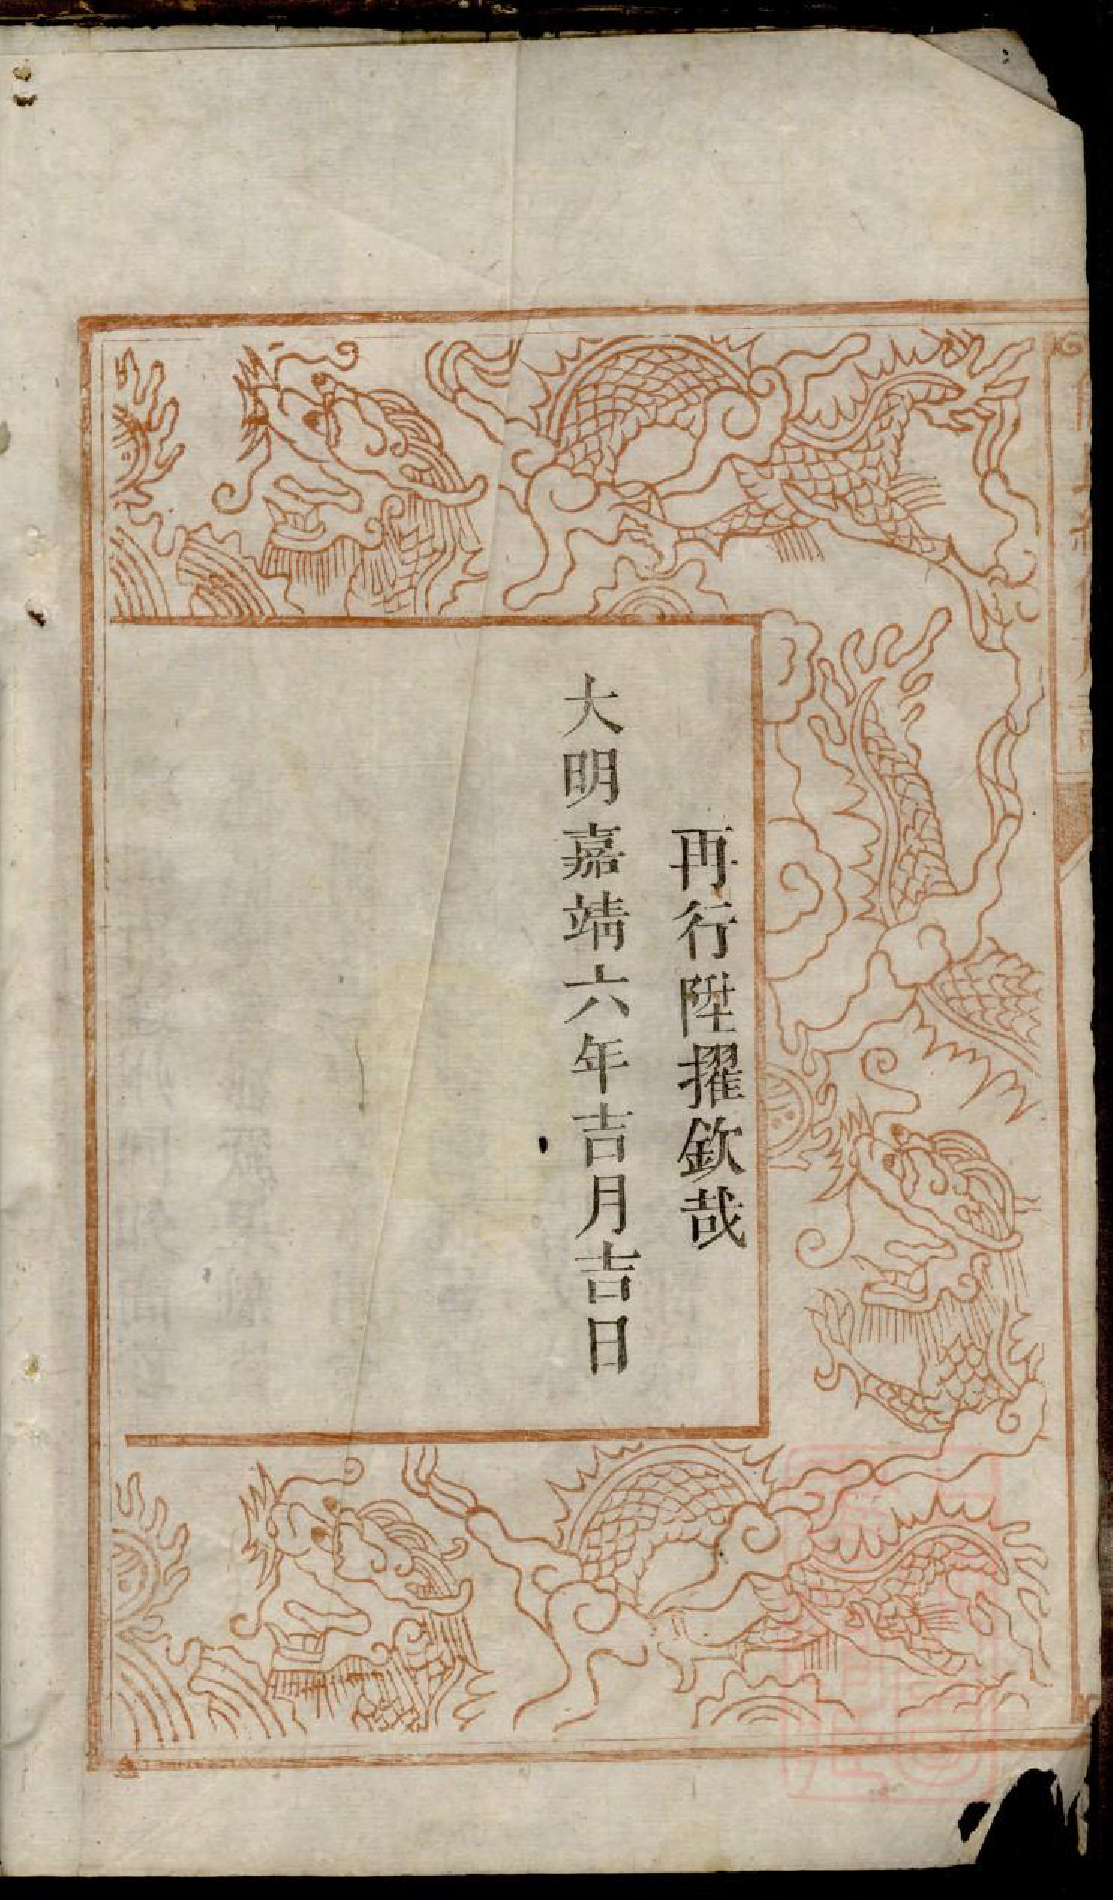 再行陞擢欽哉
大明嘉靖六年吉月吉日